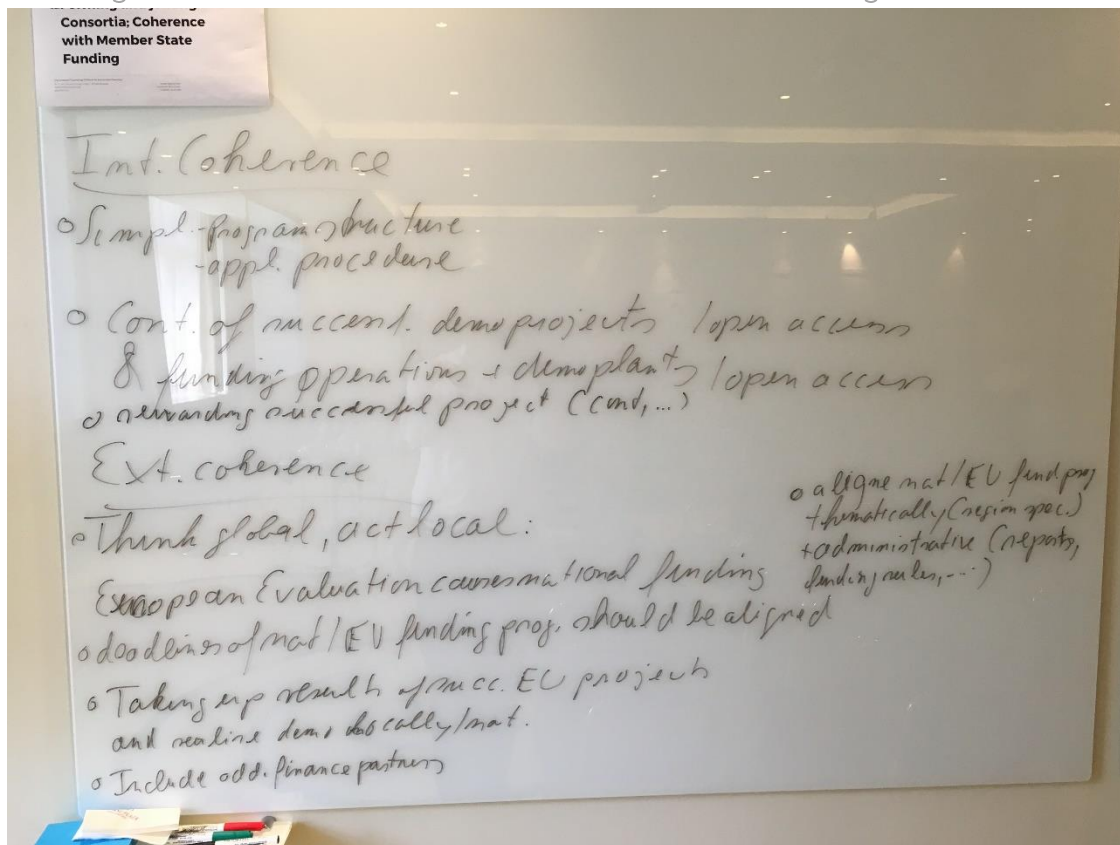 Consortia; Coherence
with Member State
Funding
Int. Coherence
o Simpl. - program structure
- appl. procedure
o Cont. of success. demo projects / open access
& funding operations + demoplants / open access
o rewarding successful project (cont, ...)
Ext. coherence
o Think global, act local:
European Evaluation causes national funding
o deadlines of nat/EU funding prog. should be aligned
o Taking up results of succ. EU projects
and realise demo locally/nat.
o Include add. finance partners
o aligne nat/EU fund prog
thematically (region spec.)
+ administrative (reports,
funding rules, ...)